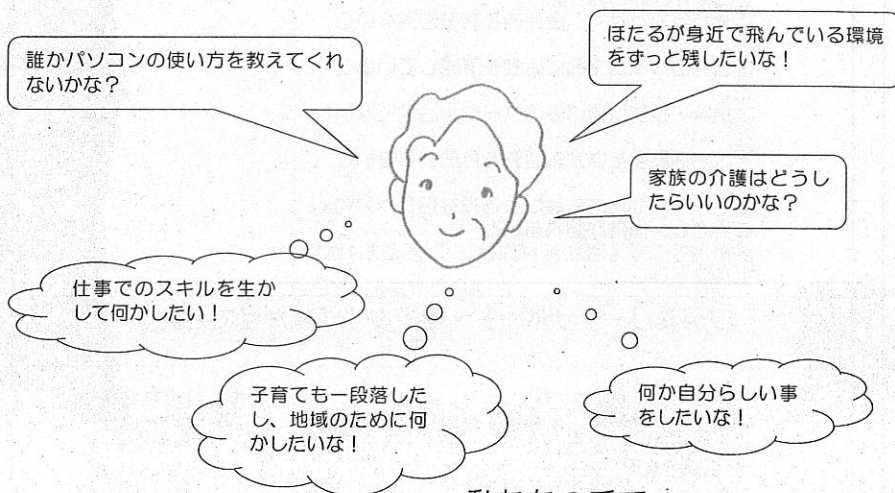 誰かパソコンの使い方を教えてくれ
ないかな?
ほたるが身近で飛んでいる環境
をずっと残したいな!
家族の介護はどうし
たらいいのかな?
仕事でのスキルを生か
して何かしたい!
子育ても一段落した
し、地域のために何
かしたいな!
何か自分らしい事
をしたいな!